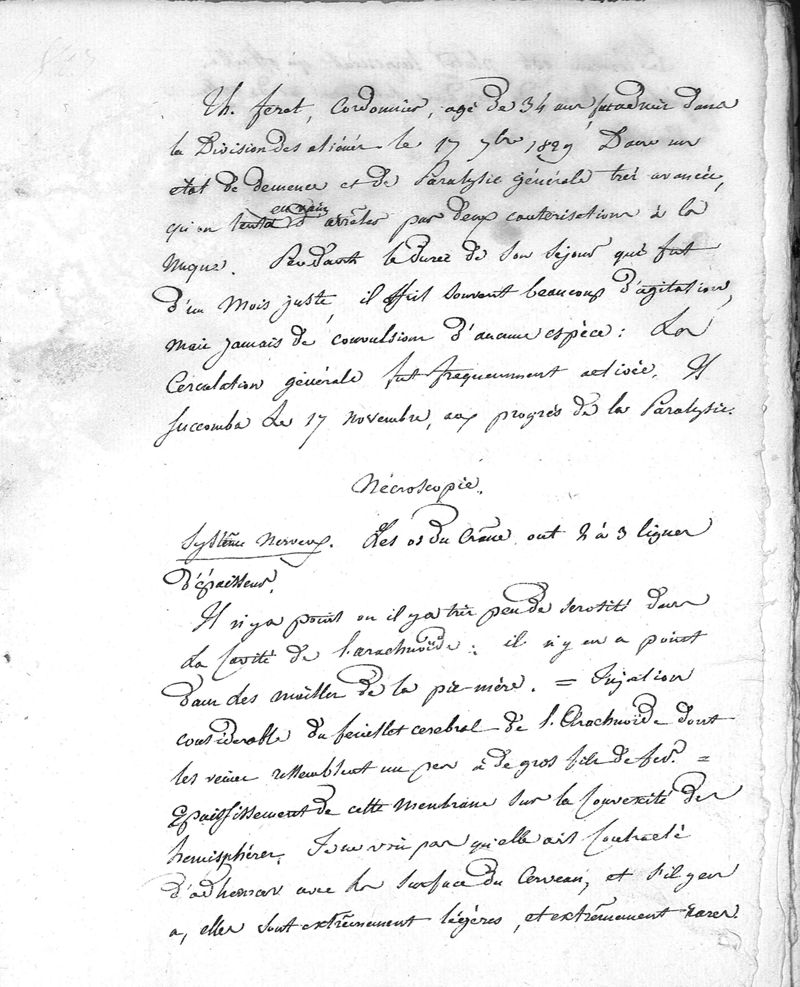 Th. feret, Cordonnier, agé de 34 ans, fut admis dans
la Division des aliénés le 17 7bre 1829 Dans un
état de demence et de Paralysie générale très avancée,
en vain
qu'on tenta d'arrêter par deux cautérisations à la
Nuque. Pendant la durée de son séjour qui fut
d'un Mois juste, il y eut souvent beaucoup d'agitation,
mais jamais de convulsion d'aucune espèce: La
Circulation générale fut frequemment activée. Il
succomba Le 17 novembre, aux progrès de la Paralysie.
Nécroscopie.
Système Nerveux. Les os du Crâne ont 2 à 3 lignes
d'épaisseur.
Il n'y a point ou il y a très peu de serosité dans
La Cavité de l'arachnoïde: il n'y en a point
dans les mailles de la pie-mère. = Injection
considerable du feuillet cerebral de l'Arachnoïde dont
les veines ressemblent un peu à de gros fils de fer. =
Epaississement de cette Membrane sur la Convexité des
hemisphères. Je ne vois pas qu'elle ait Contracté
d'adhérences avec la surface du Cerveau, et s'il y en
a, elles sont extrêmement légères, et extrêmement rares